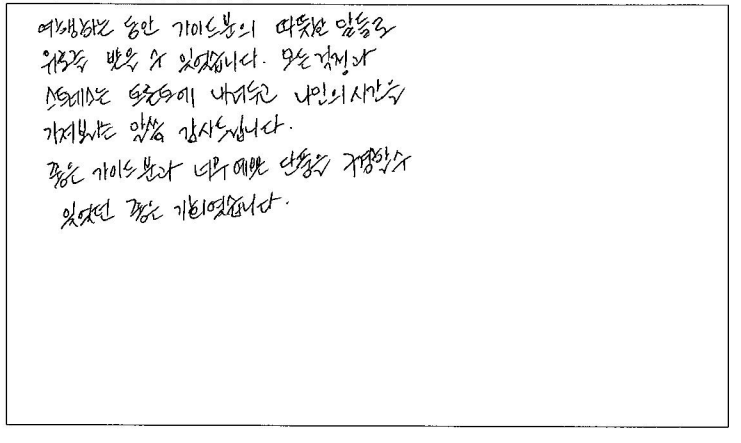 여행하는 동안 가이드분의 따뜻한 말들로
위로를 받을 수 있었습니다. 모든 걱정과
스트레스는 토론토에 내려두고 나만의 시간을
가져보라는 말씀 감사드립니다.
좋은 가이드분과 너무 예쁜 단풍을 구경할수
있었던 좋은 기회였습니다.